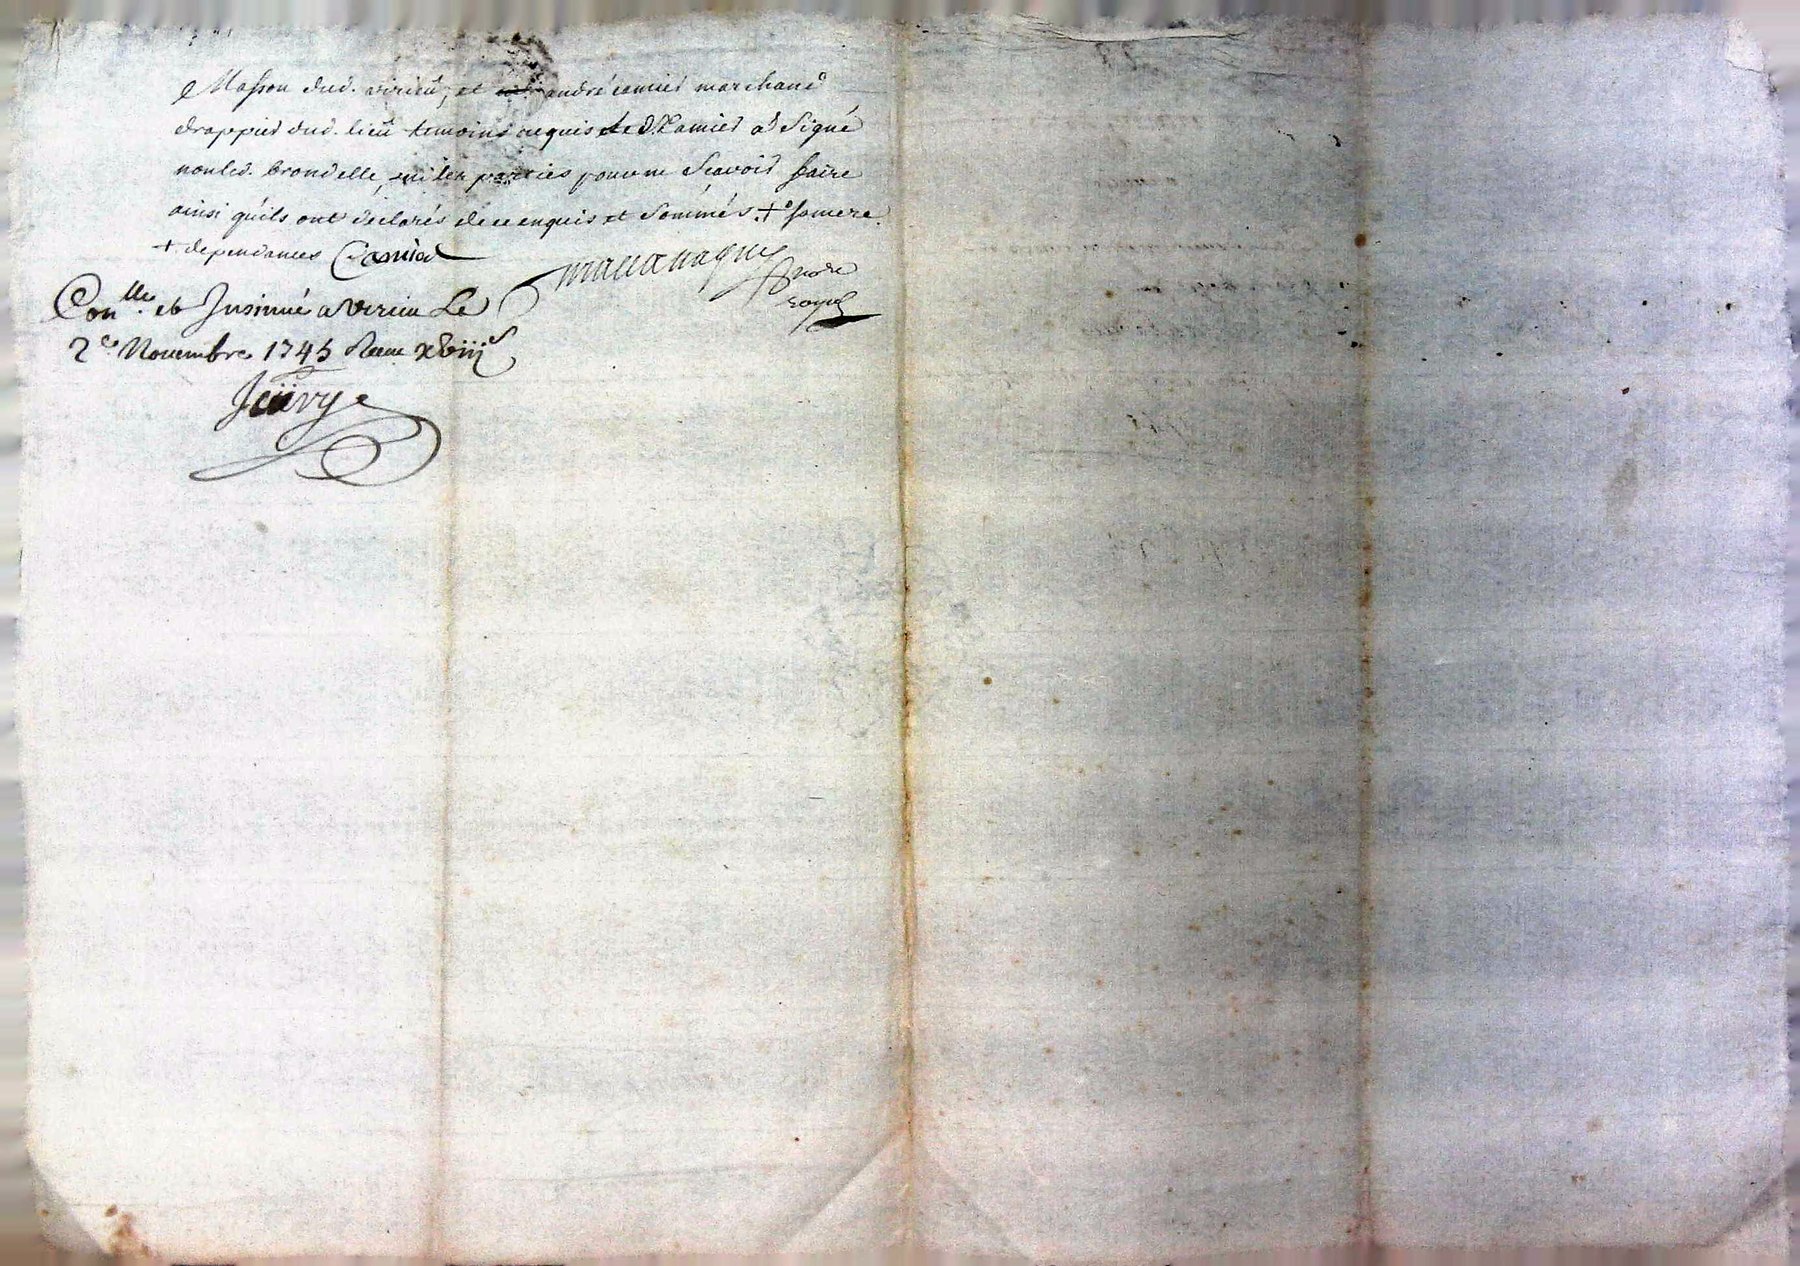 Masson dud. virieu, et andré camier marchand
drappier dud. lieu temoins requis led. Camier a signé
non led. brondelle, ni les parties pour ne scavoir faire
ainsi quils ont déclarés de ce enquis et sommés. +
+ dependances Camier
not.re
royal
Con.lle et Insinué a virieu Le
2e Novembre 1745 Recu xviii s